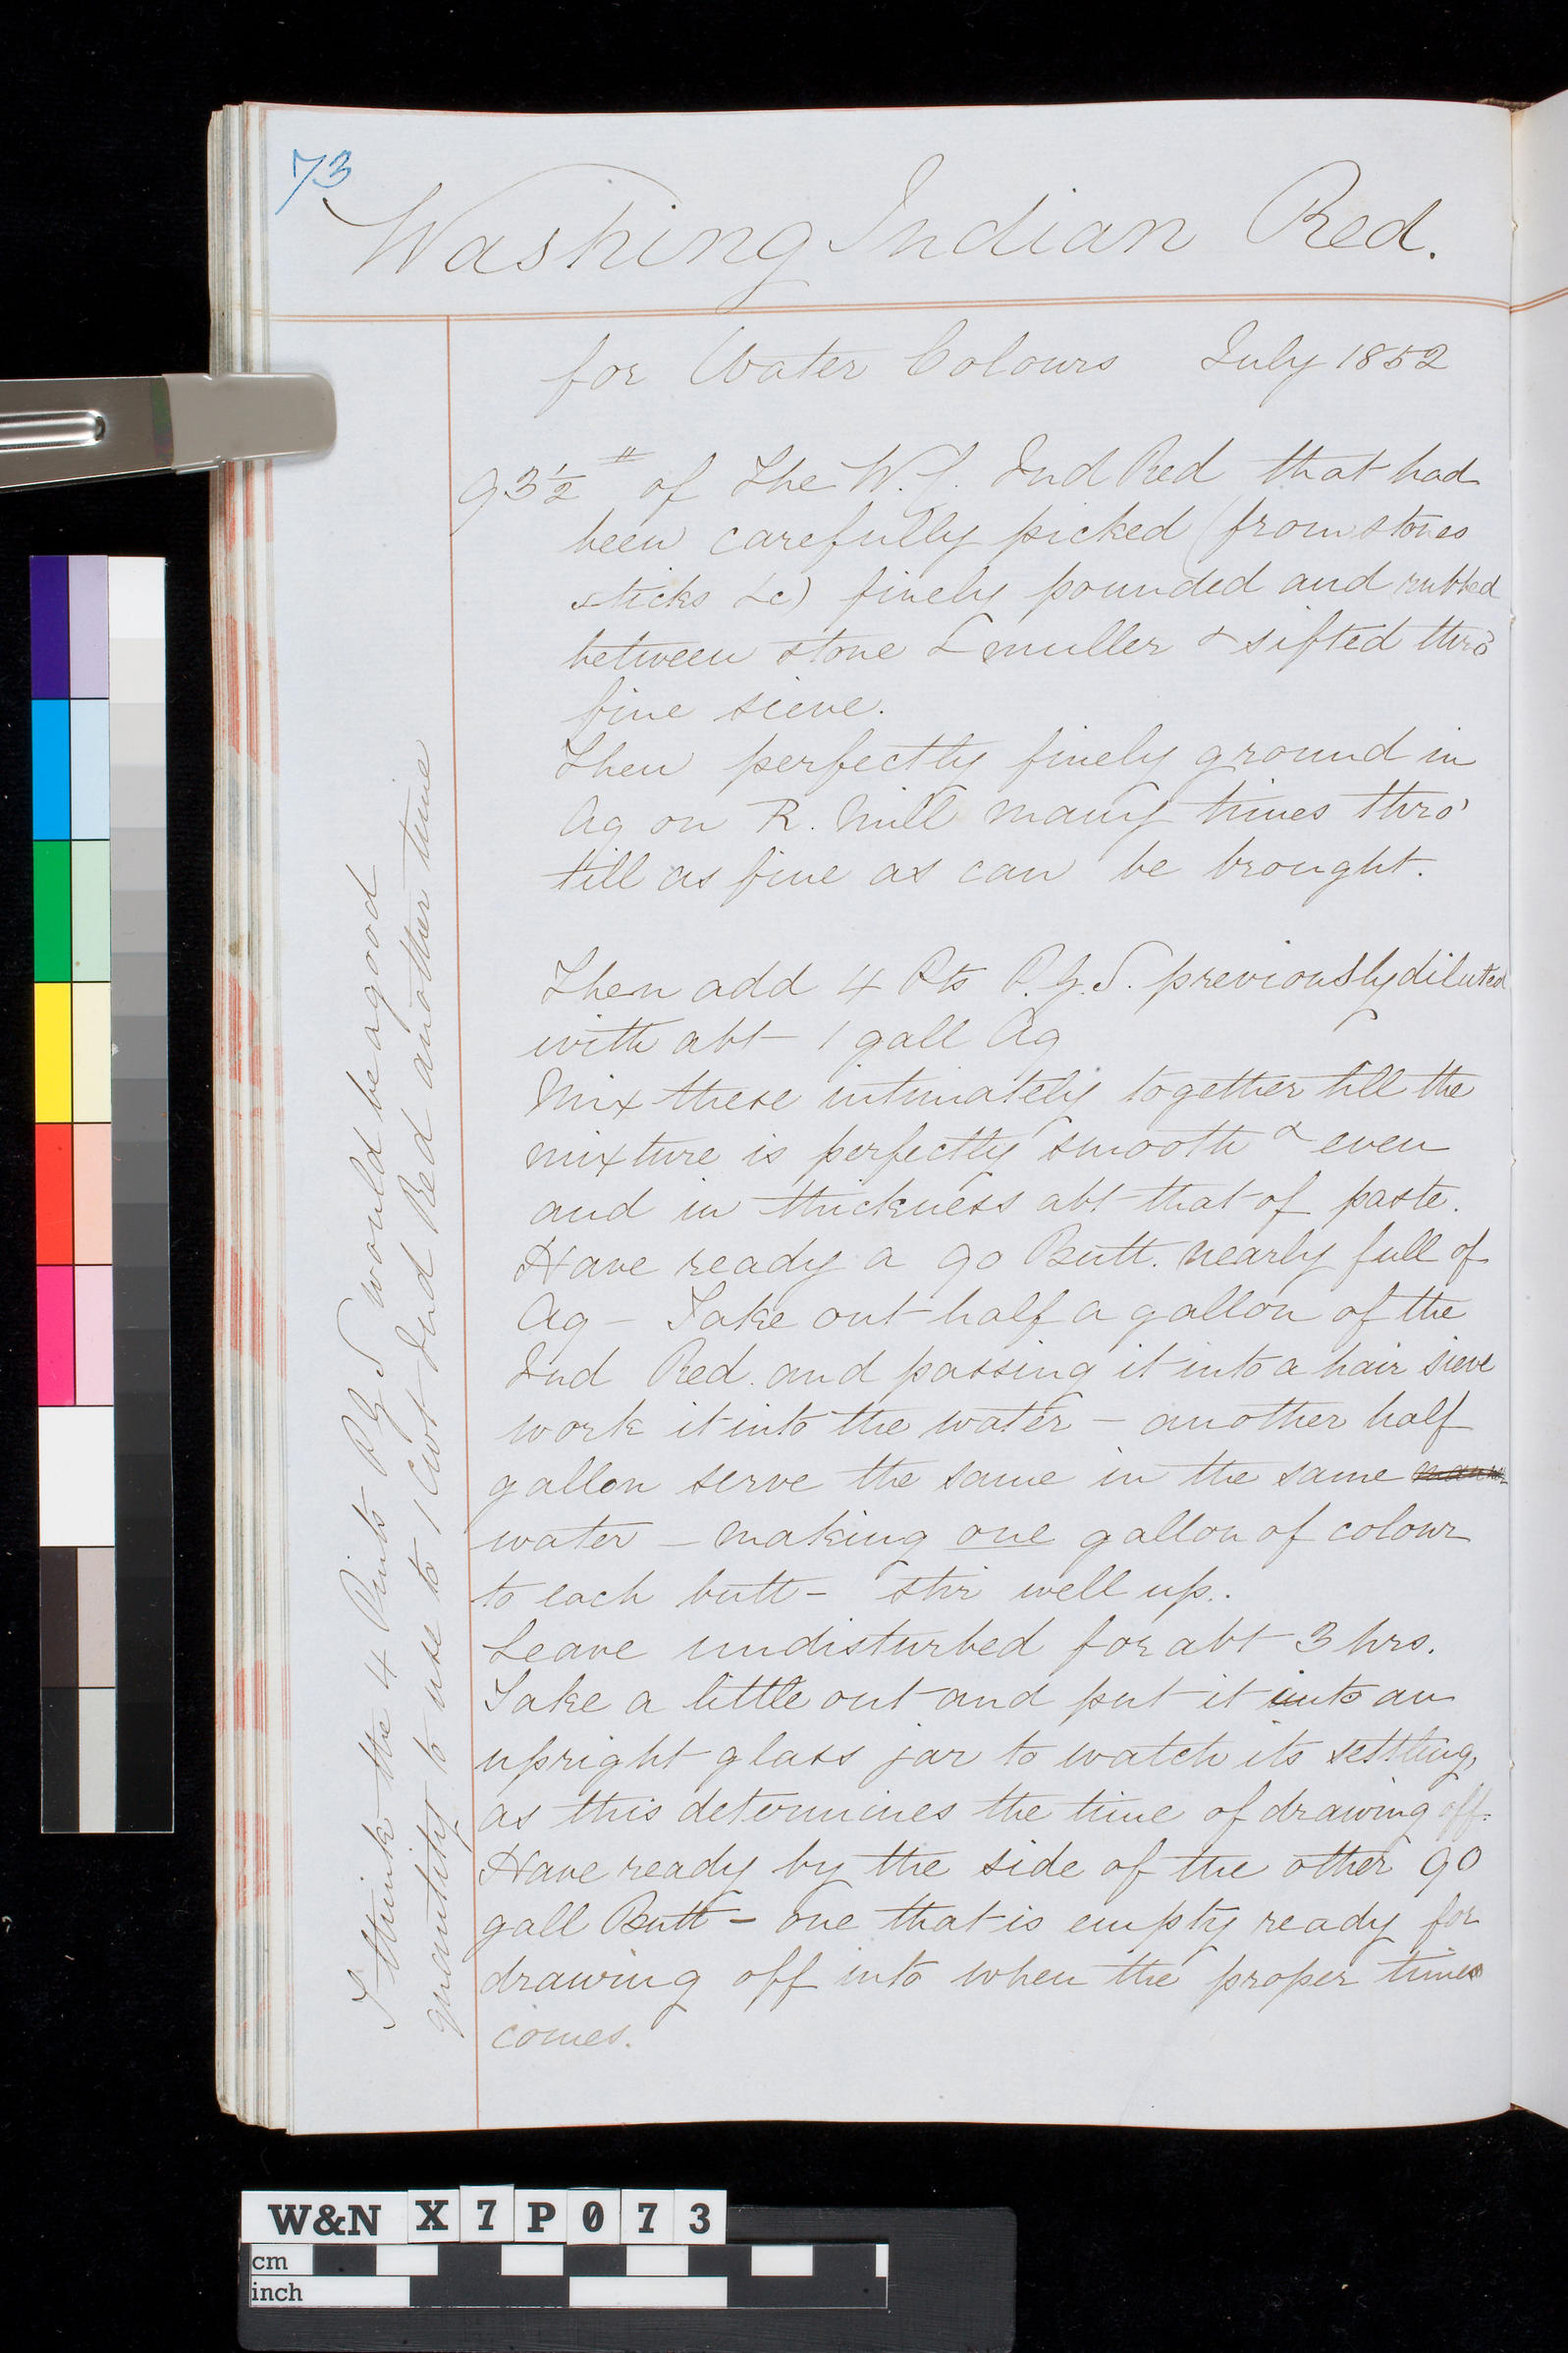 73
Washing Indian Red.
for Water Colours July 1852
93½ # of The W.J. Ind Red that had
been carefully picked (from stones
sticks &c) finely pounded and rubbed
between stone & muller & sifted thro'
fine sieve.
Then perfectly finely ground in
Aq on R. Mill many times thro'
till as fine as can be brought.
Then add 4 Pts P.G.S. previously diluted
with abt 1 gall Aq
Mix these intimately together till the
mixture is perfectly smooth & even
and in thickness abt that of paste.
Have ready a 90 Butt. nearly full of
Aq – Take out half a gallon of the
Ind Red. and passing it into a hair sieve
work it into the water – another half
gallon serve the same in the same manner
water – making one gallon of colour
to each butt – stir well up..
Leave undisturbed for abt 3 hrs.
Take a little out and put it into an
upright glass jar to watch its settling,
as this determines the time of drawing off.
Have ready by the side of the other 90
gall Butt – one that is empty ready for
drawing off into when the proper time
comes.
I think the 4 Pints P G S would be a good
quantity to use to 1 Cwt Ind Red another time
W&N X7P073
cm
inch